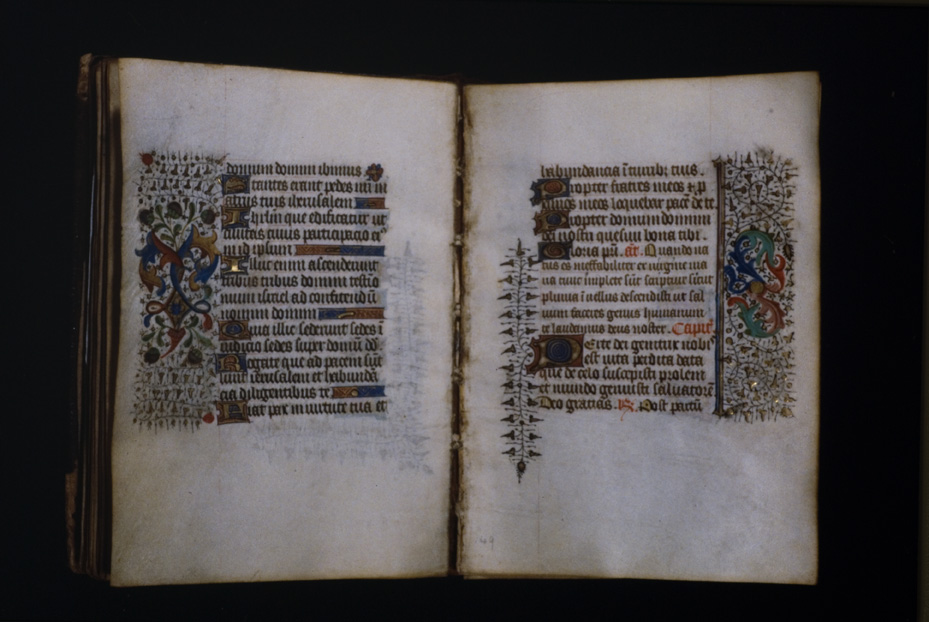 domum domini ibimus
Stantes erant pedes n̄ri in
atriis tuis iherusalem
Iherusalem que edificatur ut
civitas cuius participatio ei9
in id ipsum
Illuc enim ascenderunt
tribus tribus domini testimo
nium israel ad confitendū
nomini domini
Quia illic sederunt sedes ī
iudicio sedes super domū dd
Rogate que ad pacem sūt
iherusalem et habundā
cia diligentibus te
Fiat pax in virtute tua et
habundancia ī turrib; tuis.
Propter fratres meos & p
ximos meos loquebar pacē de te
Propter domum domini
dei nostri quesivi bona tibi.
Gloria pr̄i. an̄. Quando na
tus es ineffabiliter ex virgine tūc
implete sūt scripture sicut
pluvia ī vellus descendisti ut sal
vum faceres genus humanum
te laudamus deus noster. Capit'
dei genitrix nobis
est vita perdita data
que de celo suscepisti prolem
et mundo genuisti salvatorē
Deo gratias. V̄. Post partū
49